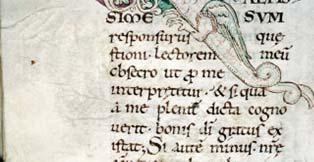 SIME SUM
responsurus que
stioni. lectorem meū
obsecro ut ꝓ me
interpretetur. & si qua
a me plenie dicta cogno
verit. bonis dī gratus ex
istat; Si autē minus